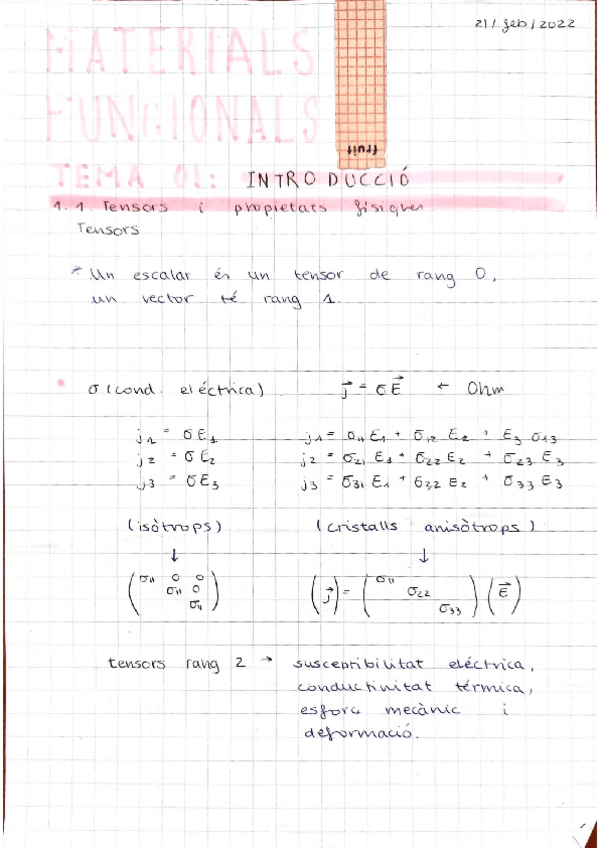 21/feb/2022
MATERIALS
FUNCIONALS
fruit
TEMA 01: INTRODUCCIÓ
1.1 Tensors i propietats físiques
Tensors
* Un escalar és un tensor de rang 0,
un vector té rang 1.
• σ (cond. eléctrica). j⃗ = σE⃗ ← Ohm
j₁ = σE₁ j₁ = σ₁₁E₁ + σ₁₂ E₂ + E₃ σ₁₃
j₂ = σE₂ j₂ = σ₂₁ E₁ + σ₂₂ E₂ + σ₂₃ E₃
j₃ = σE₃ j₃ = σ₃₁ E₁ + σ₃₂ E₂ + σ₃₃ E₃
(isòtrops) (cristalls anisòtrops)
↓ ↓
σ₁₁ 0 0 σ₁₁
σ₁₁ 0 (j⃗) = σ₂₂ (E⃗)
σ₁₁ σ₃₃
tensors rang 2 → susceptibilitat eléctrica,
conductivitat térmica,
esforç mecànic i
deformació.